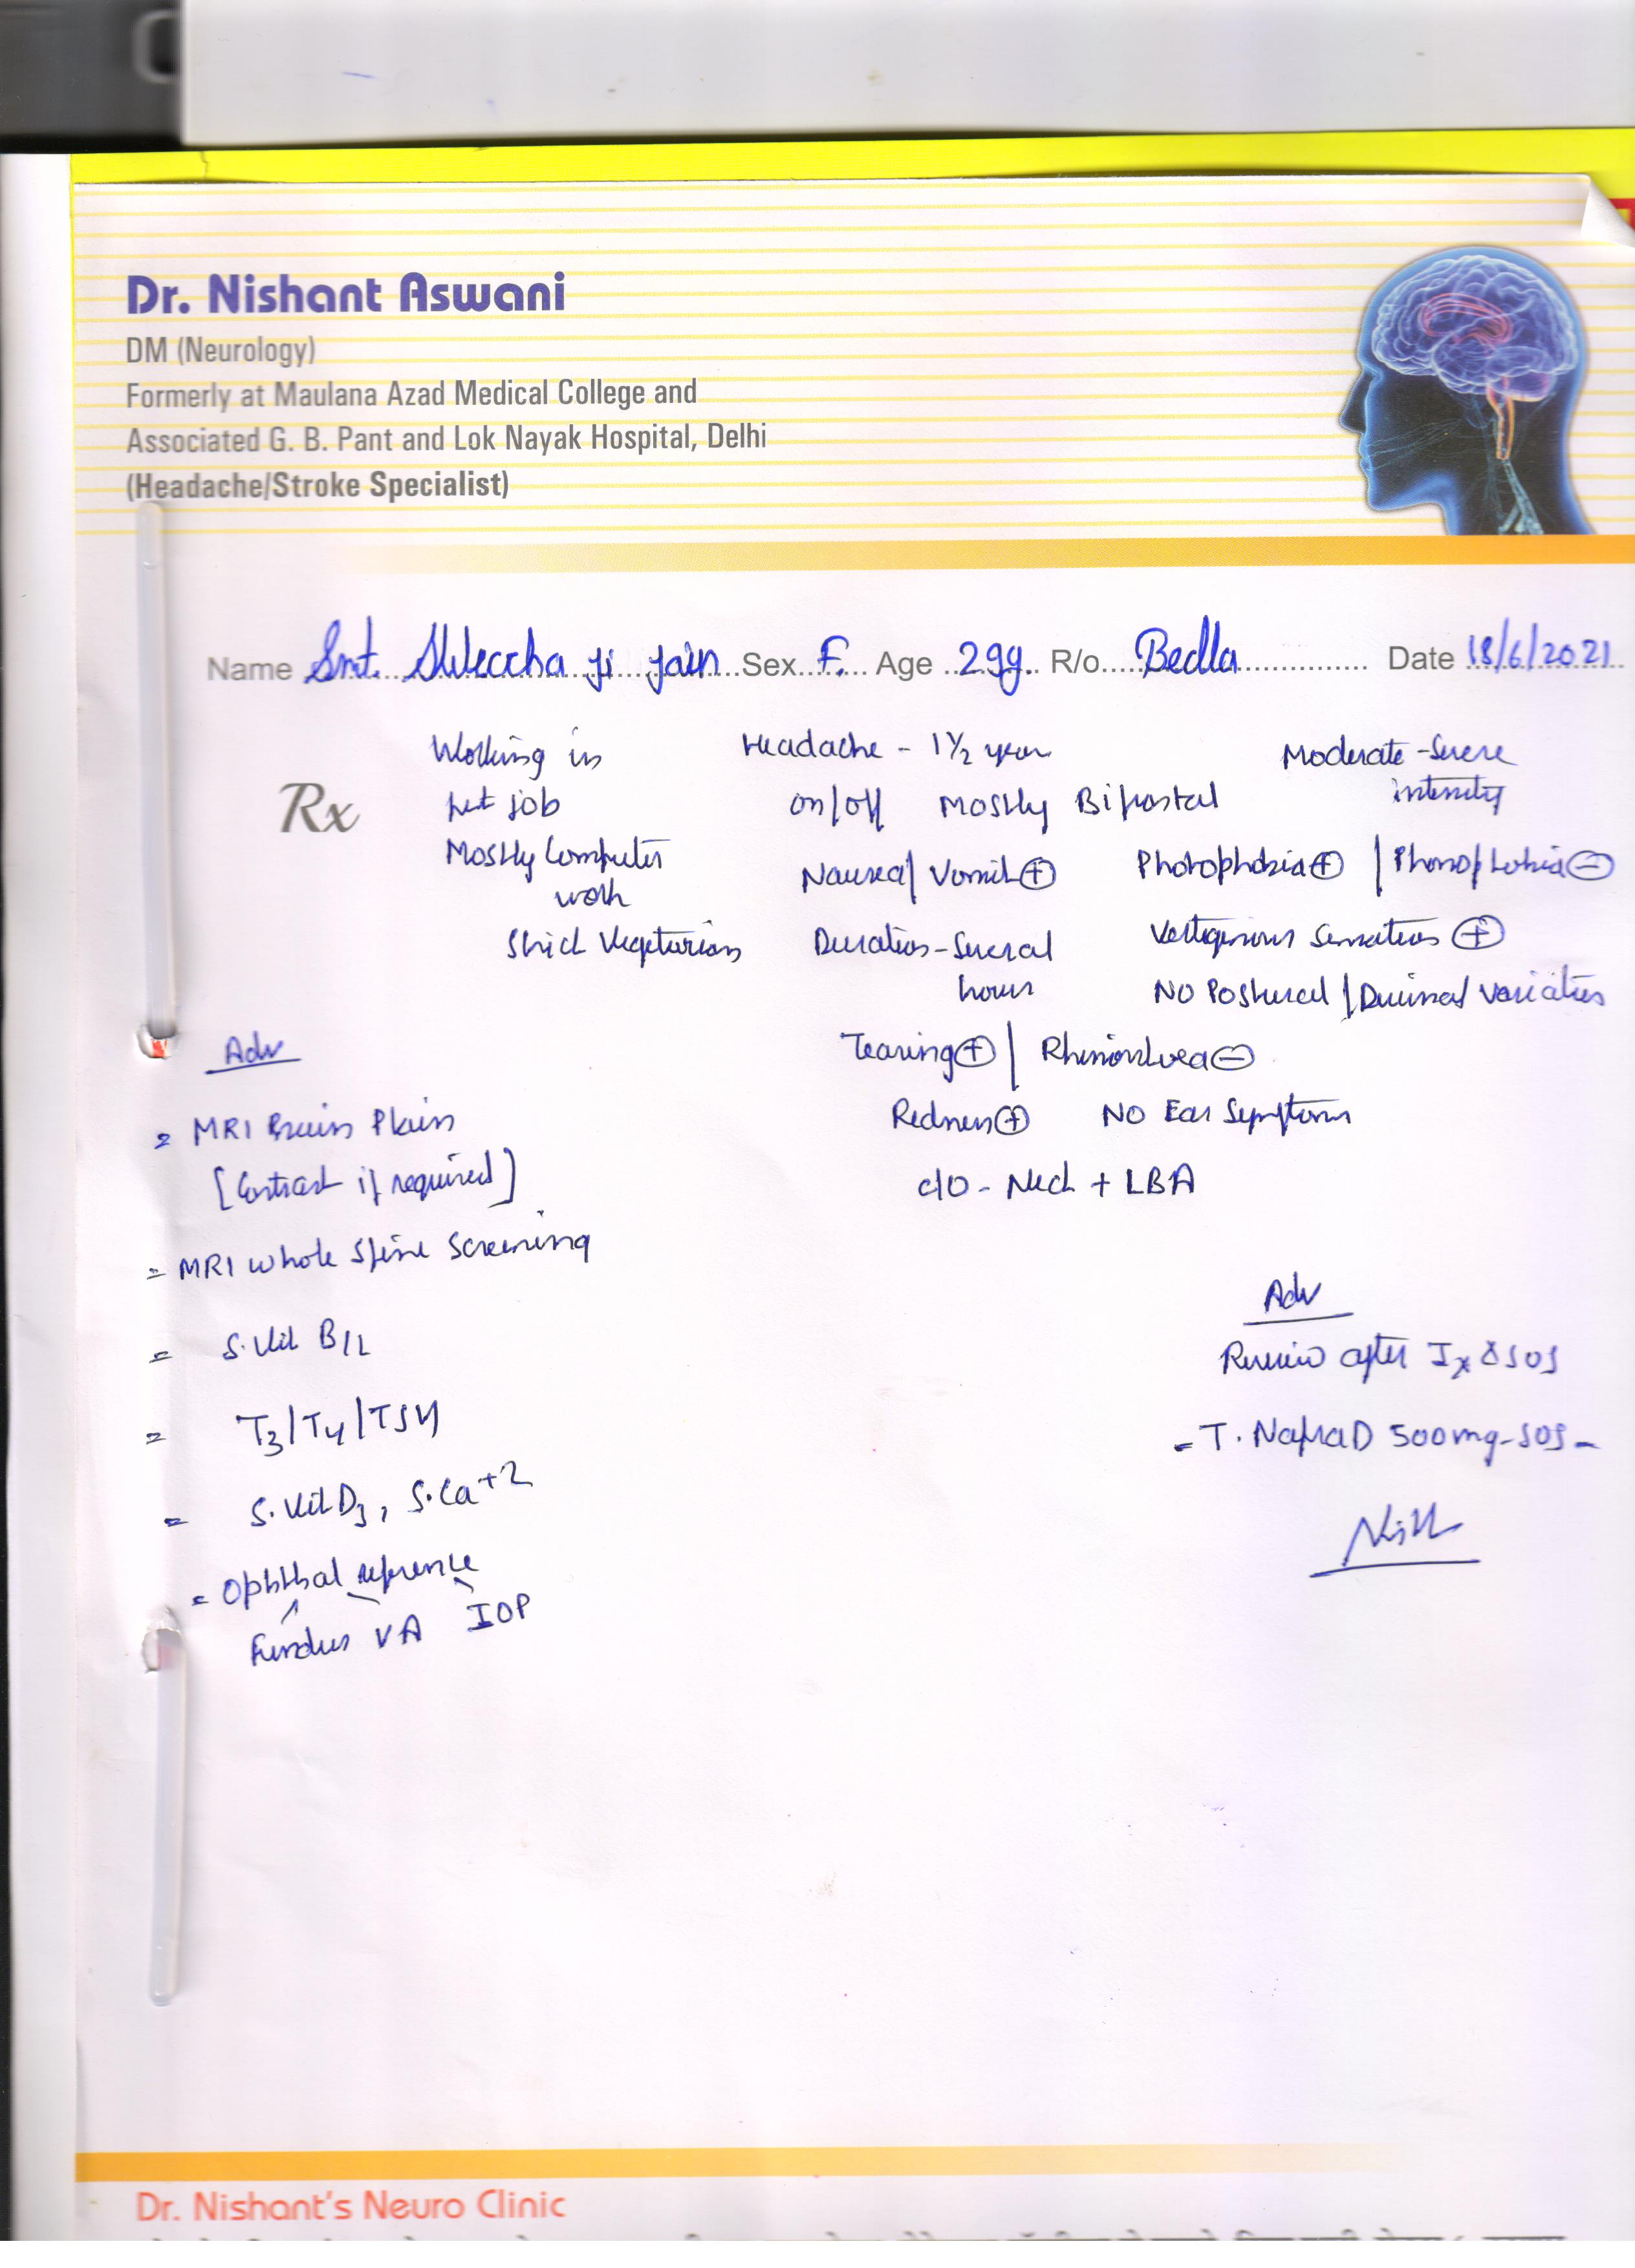 Dr. Nishant Aswani
DM (Neurology)
Formerly at Maulana Azad Medical College and
Associated G. B. Pant and Lok Nayak Hospital, Delhi
(Headache/Stroke Specialist)
Name Smt. ji Jain Sex F. Age 29y. R/o Bedla Date 18/6/2021
Rx
Working in
job
Mostly Computer
work
Strict Vegetarian
Headache - 1½ year
on/off Mostly Bifrontal
Moderate-Severe
intensity
Nausea/ Vomit ⊕ Photophobia ⊕ | Phonophobia ⊖
Duration - Several
hours
Vertiginous Sensations ⊕
NO Postural / Diurnal variation
Tearing ⊕ | Rhinorrhea ⊖
Redness ⊕ NO Ear Symptoms
c/o - Neck + LBA
Adv
= MRI Brain Plain
[Contrast if required]
= MRI whole Spine Screening
= S. Vit B12
= T3/T4/TSH
= S. Vit D3, S. Ca+2
= Ophthal reference
Fundus VA IOP
Adv
Review after Ix & SOS
- T. Naxdom 500mg - SOS -
Dr. Nishant's Neuro Clinic